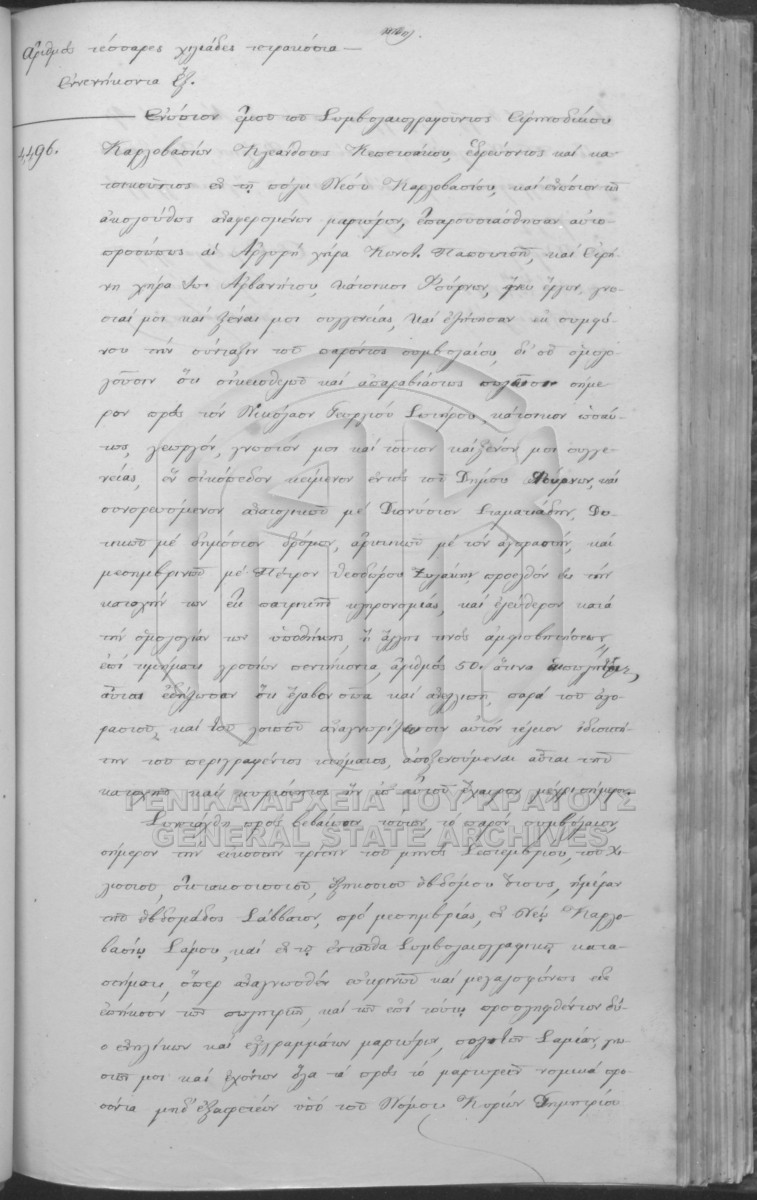 Ἀριθμὸς τέσσαρες χιλιάδες τετρακόσια
ἐννενήκοντα ἕξ.
Ἐνώπιον ἐμοῦ τοῦ Συμβολαιογραφοῦντος Εἰρηνοδίκου
4,496.
Καρλοβασίων Κλεάνθους Κεπεσάκου, ἑδρεύοντος καὶ κα-
τοικοῦντος ἐν τῇ πόλει Νέου Καρλοβασίου, καὶ ἐνώπιον τῶν
ἀκολούθως ἀναφερομένων μαρτύρων, ἐπαρουσιάσθησαν αὐτο-
προσώπως αἱ Ἀργυρῆ χήρα Κωνστ. καὶ Εἰρή-
νη χήρα Ἰω. Ἀρβανήτου, κάτοικοι Φούρνων, ἄνευ ἔργου, γνω-
σταί μοι καὶ ξέναι μοι συγγενείας, καὶ ἐζήτησαν ἐκ συμφώ-
νου τὴν σύνταξιν τοῦ παρόντος συμβολαίου, δι' οὗ ὁμολο-
γοῦσιν ὅτι οἰκειοθελῶς καὶ ἀπαραβιάστως πωλοῦσιν σήμε-
ρον πρὸς τὸν Νικόλαον Γεωργίου Σωτήρου, κάτοικον ὡσαύ-
τως, γεωργόν, γνωστόν μοι καὶ τοῦτον καὶ ξένον μοι συγγε-
νείας, ἓν οἰκόπεδον κείμενον ἐντὸς τοῦ Δήμου Φούρνων, καὶ
συνορευόμενον ἀνατολικῶς μὲ Διονύσιον Σταματιάδην, Δυ-
τικῶς μὲ δημόσιον δρόμον, ἀρκτικῶς μὲ τὸν ἀγοραστήν, καὶ
μεσημβρινῶς μὲ Πέτρον Θεοδώρου προελθὸν εἰς τὴν
κατοχήν των ἐκ πατρικῆς κληρονομίας, καὶ ἐλεύθερον κατὰ
τὴν ὁμολογίαν των ὑποθήκης, ἢ ἄλλης τινὸς ἀμφισβητήσεως,
ἐπὶ τιμήματι γροσίων πεντήκοντα, ἀριθμὸς 50. ἅτινα
αὗται ἐδήλωσαν ὅτι ἔλαβον σῶα καὶ ἀνελλιπῆ παρὰ τοῦ ἀγο-
ραστοῦ, καὶ τοῦ λοιποῦ ἀναγνωρίζουσιν αὐτὸν τέλειον ἰδιοκτή-
την τοῦ περιγραφέντος κτήματος, ἀποξενούμεναι αὗται τῆς
κατοχῆς καὶ κυριότητος ἣν ἐπ' αὐτοῦ ἔχαιρον μέχρι σήμερον.
ΓΕΝΙΚΑ ΑΡΧΕΙΑ ΤΟΥ ΚΡΑΤΟΥΣ
Συνετάχθη πρὸς βεβαίωσιν τούτων τὸ παρὸν συμβόλαιον
GENERAL STATE ARCHIVES
σήμερον τὴν εἰκοστὴν τρίτην τοῦ μηνὸς Σεπτεμβρίου, τοῦ χι-
λιοστοῦ, ὀκτακοσιοστοῦ, ἑξηκοστοῦ ἑβδόμου ἔτους, ἡμέραν
τῆς ἑβδομάδος Σάββατον, πρὸ μεσημβρίας, ἐν Νέῳ Καρλο-
βασίῳ Σάμου, καὶ ἐν τῷ ἐνταῦθα Συμβολαιογραφικῷ κατα-
στήματι, ὅπερ ἀναγνωσθὲν εὐκρινῶς καὶ μεγαλοφώνως εἰς
ἐπήκοον τῶν πωλητριῶν, καὶ τῶν ἐπὶ τούτῳ προσληφθέντων δύ-
ο ἐνηλίκων καὶ ἐγγραμμάτων μαρτύρων, πολιτῶν Σαμίων, γνω-
στῶν μοι καὶ ἐχόντων ὅλα τὰ πρὸς τὸ μαρτυρεῖν νομικὰ προ-
σόντα μηδ' ἐξαιρετέων ὑπὸ τοῦ Νόμου Κυρίων Δημητρίου